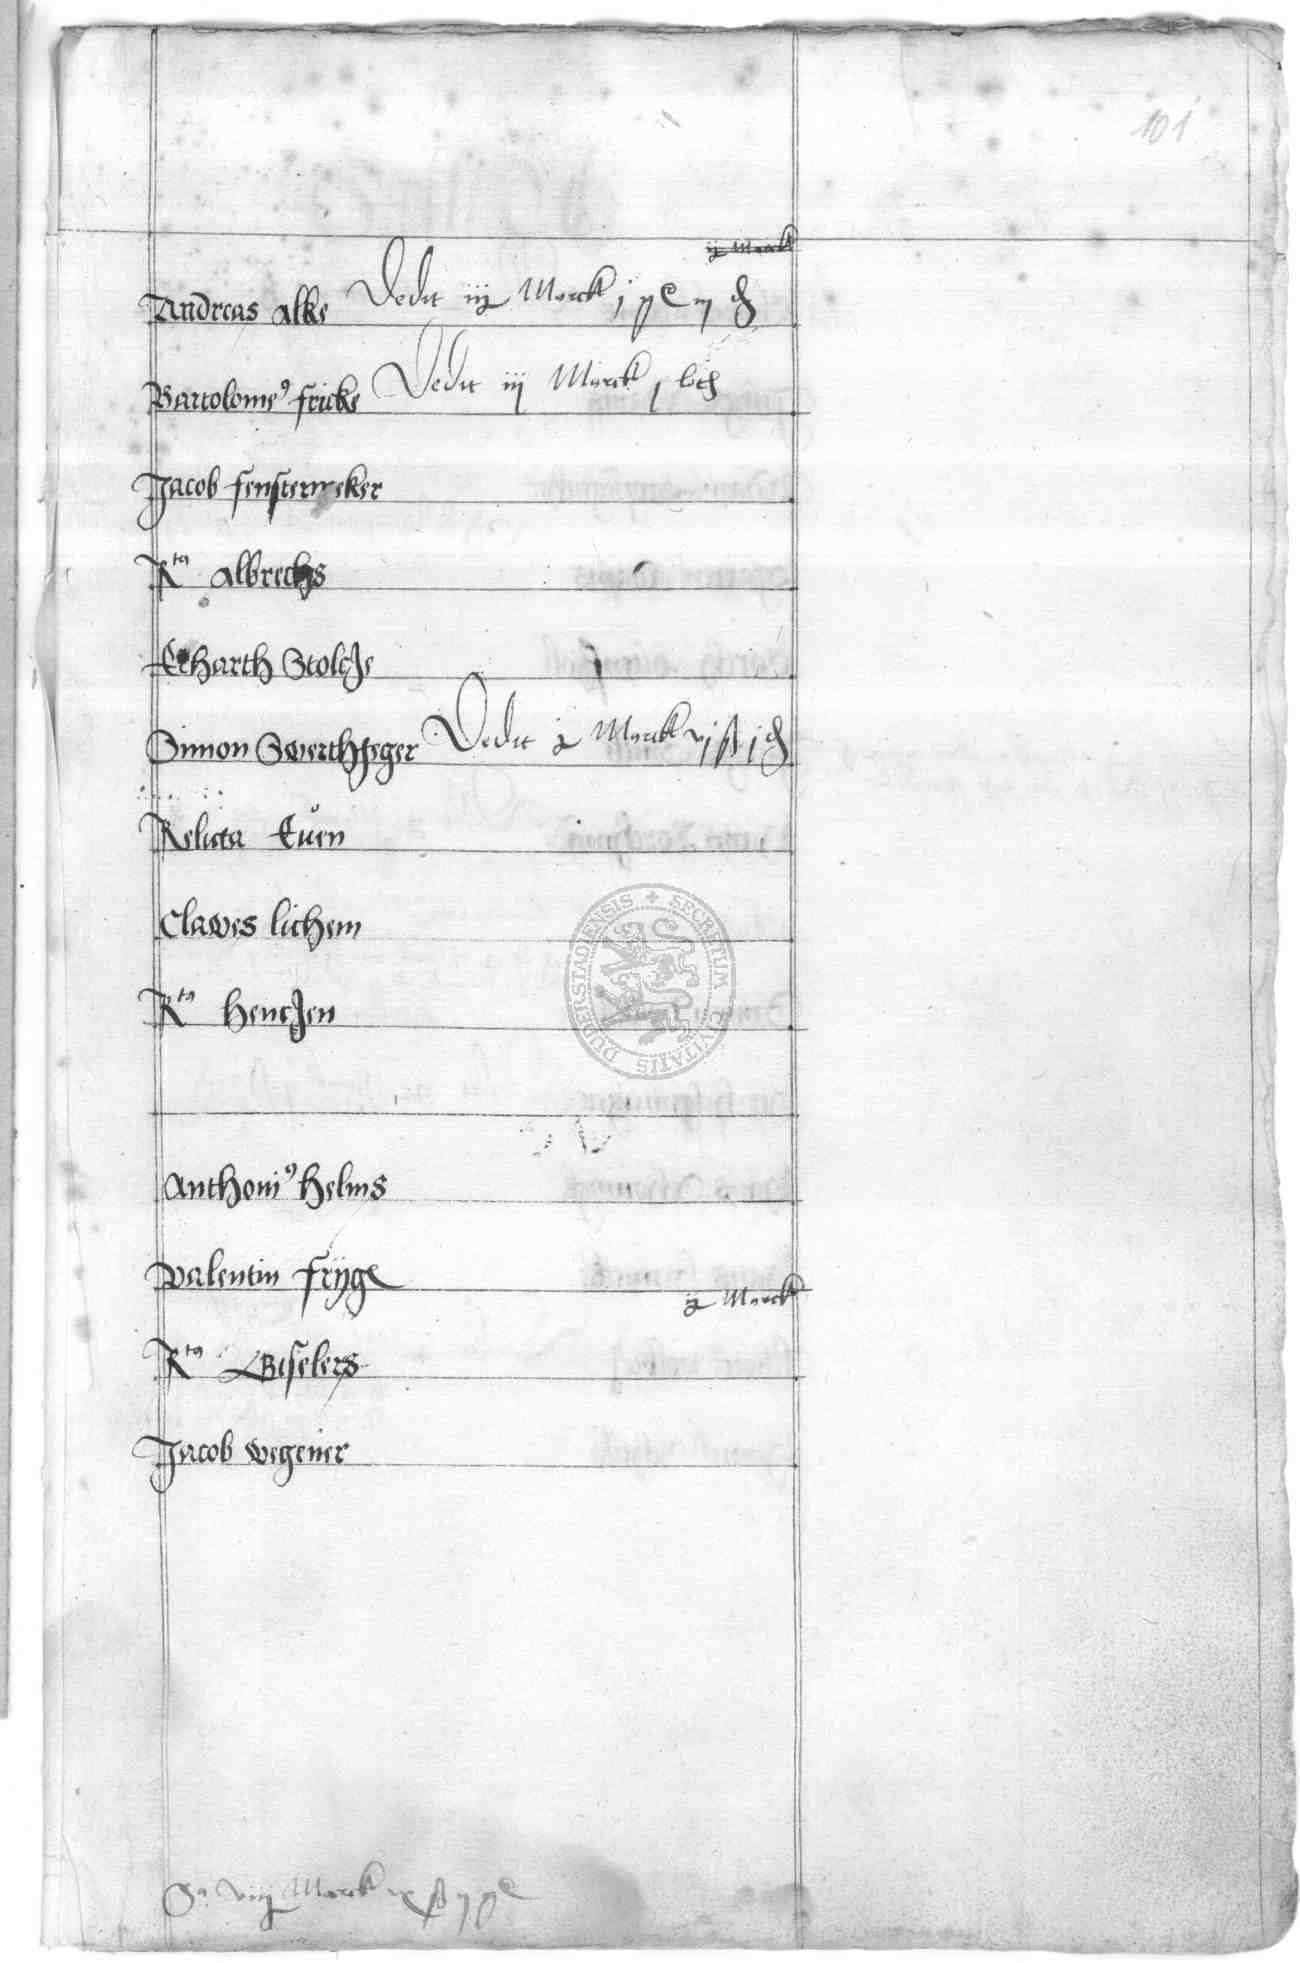 101
ij Marck
Andreas Alke Dedit iij Marck j
Bartolome9 fricke Dedit iij Marck j lot
Jacob fensterweker
Rta Albrechs
Ekharth Stoltze
Simon Swerthfeger Dedit Marck vj ß j
Relicta Even
Clawes lichem
Rta hentzen
Anthoni9 helms
Valentin fryge
ij Marck
Rta Giselers
Jacob wegener
Sa viij Marck
SECRETUM CIVITATIS DUDERSTADIENSIS